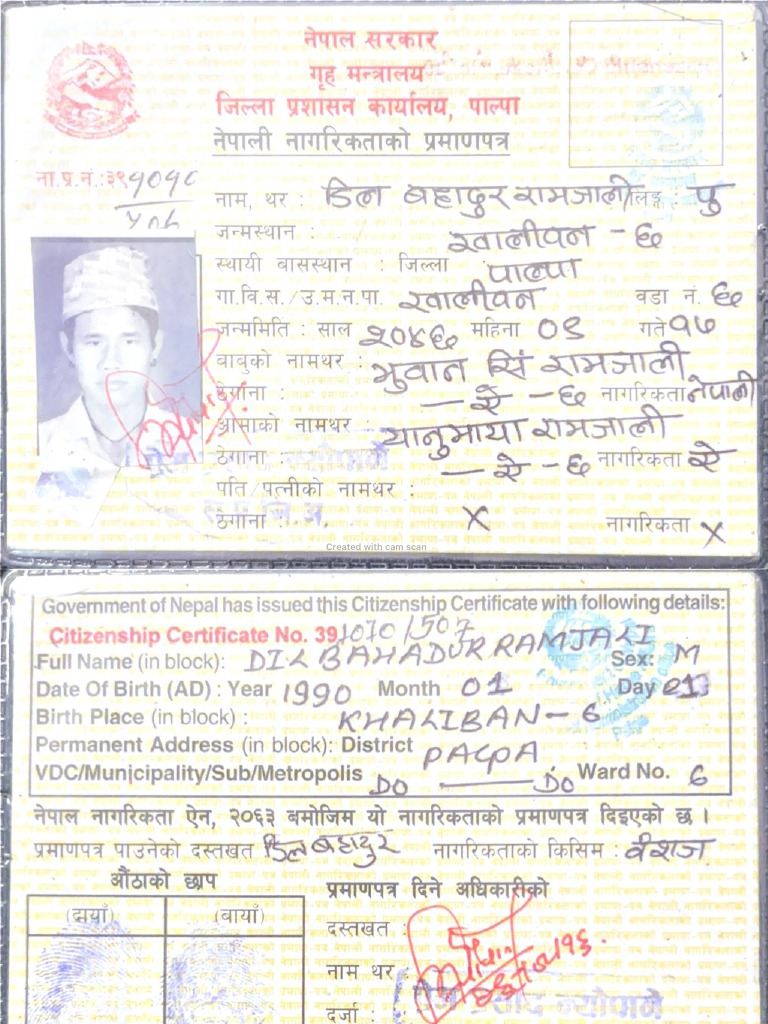 नेपाल सरकार
गृह मन्त्रालय
जिल्ला प्रशासन कार्यालय, पाल्पा
नेपाली नागरिकताको प्रमाणपत्र
ना.प्र.नं.:३९
नाम, थर : डिल बहादुर रामजाली लिङ्ग : पु
जन्मस्थान : खालीवन - ६
स्थायी बासस्थान : जिल्ला पाल्पा
गा.वि.स./उ.म.न.पा. खालीवन वडा नं. ६
जन्ममिति : साल २०४६ महिना ०९ गते १७
बाबुको नामथर : भुवान सिं रामजाली
ठेगाना : — ऐ — ६ नागरिकता नेपाली
आमाको नामथर : यानुमाया रामजाली
ठेगाना — ऐ — ६ नागरिकता ऐ
पति/पत्नीको नामथर :
ठेगाना X नागरिकता X
Created with cam scan
Government of Nepal has issued this Citizenship Certificate with following details:
Citizenship Certificate No. 39/1070/507
Full Name (in block): DIL BAHADUR RAMJALI Sex: M
Date Of Birth (AD) : Year 1990 Month 01 Day 01
Birth Place (in block) : KHALIBAN - 6
Permanent Address (in block): District PALPA
VDC/Municipality/Sub/Metropolis DO — DO Ward No. 6
नेपाल नागरिकता ऐन, २०६३ बमोजिम यो नागरिकताको प्रमाणपत्र दिइएको छ ।
प्रमाणपत्र पाउनेको दस्तखत डिल बहादुर नागरिकताको किसिम : वंशज
औंठाको छाप
(दायाँ) (बायाँ)
प्रमाणपत्र दिने अधिकारीको
दस्तखत :
नाम थर :
दर्जा :